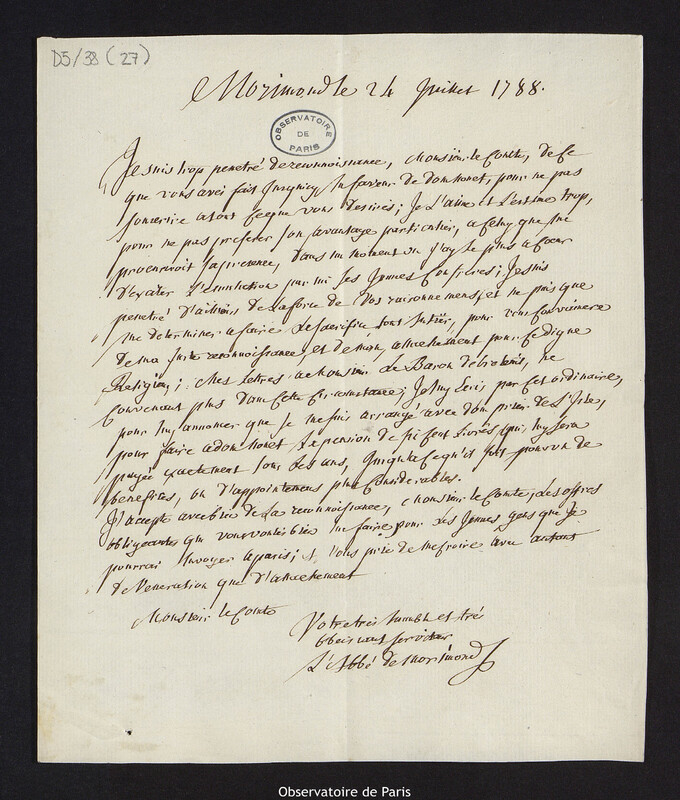 D5/38 (27)
Morimond le 24 Juillet 1788.
OBSERVATOIRE
DE
PARIS
Je suis trop penetré de reconnoissance, Monsieur le Comte, de ce
que vous avez fait jusqu'icy en faveur de dom nouet, pour ne pas
souscrire a tout ce que vous desirés; je l'aime et l'estime trop,
pour ne pas preferer son avantage particulier, a celuy que me
procureroit sa presence, dans un moment ou j'ay le plus a coeur
d'exciter l'emulation parmi ses jeunes confreres; je suis
penetré d'ailleurs de la force de vos raisonnemens, et ne puis que
me determiner a faire le sacrifice tout entier, pour vous convaincre
de ma juste reconnoissance, et de mon attachement pour ce digne
Religieux; mes lettres a Monsieur le Baron de breteuil, ne
convenant plus dans cette circonstance, je luy ecris par cet ordinaire,
pour luy annoncer que je me suis arrangé avec dom
pour faire a dom nouet la pension de six cent livres qui luy sera
payée exactement tous les ans, jusqu'a ce qu'il soit pourvu de
benefices, ou d'appointemens plus considerables.
J'accepte avec bien de la reconnoissance, Monsieur le Comte, les offres
obligeantes que vous voulés bien me faire pour des jeunes gens que je
pourrai envoyer a paris; et vous prie de me croire avec autant
de veneration que d'attachement
Monsieur le Comte
Votre tres humble et tres
obeissant serviteur
L'Abbé de morimond
Observatoire de Paris